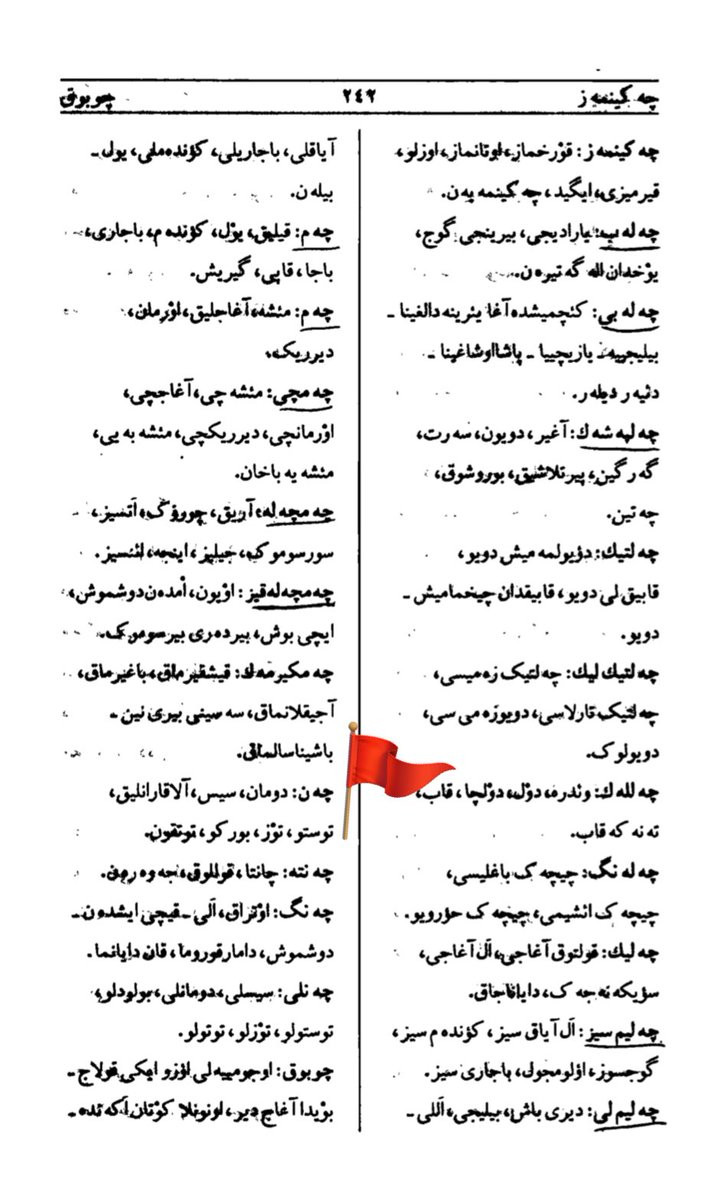 چه کینمه ز ٢٤٢ چوبوق
چه کینمه ز: قوْرخماز، اوتانماز، اوزلو،
قیرمیزی، ایگید، چه کینمه یه ن.
چه له ب: یارادیجی، بیرینجی گوج،
یوْخدان اله گه تیره ن.
چه له بی: کئچمیشده آغا یئرینه دالغینا -
بیلیجییه - یازیچییا - پاشااوشاغینا -
دئیه ر دیله ر.
چه لپه شه ك: آغیر، دویون، سه رت،
گه رگین، پیرتلاشیق، بوروشوق،
چه تین.
چه لتیك: دؤیولمه میش دویو،
قابیق لی دویو، قابیقدان چیخمامیش -
دویو.
چه لتیك لیك: چه لتیک زه میسی،
چه لتیک تارلاسی، دویوزه می سی،
دویولوک.
چه لله ك: وئدره، دوْل، دوْلچا، قاب،
ته نه که قاب.
چه له نگ: چیچه ک باغلیسی،
چیچه ک ائشیمی، چیچه ک حؤرویو.
چه لیك: قولتوق آغاجی، اَل آغاجی،
سؤیکه نه جه ک، دایاناجاق.
چه لیم سیز: اَل آیاق سیز، کؤنده م سیز،
گوجسوز، اؤلومجول، باجاری سیز.
چه لیم لی: دیری باش، بیلیجی، اَللی -
آیاقلی، باجاریلی، کؤنده ملی، یول -
بیله ن.
چه م: قیلیق، یوْل، کؤنده م، باجاری،
باجا، قاپی، گیریش.
چه م: مئشه، آغاجلیق، اوْرمان،
دیرریک.
چه مچی: مئشه چی، آغاجچی،
اوْرمانچی، دیرریکچی، مئشه به یی،
مئشه یه باخان.
چه مچه له: آریق، چوروک، اَتسیز،
سورسوموک، جیلیز، اینجه، ائنسیز.
چه مچه له قیز: اوْیون، اَمده ن دوشموش،
ایچی بوش، بیر ده ری بیر سوموک.
چه مکیرمه ك: قیشقیرماق، باغیرماق،
آجیقلانماق، سه سینی بیری نین -
باشیناسالماق.
چه ن: دومان، سیس، آلاقارانلیق،
توستو، توْز، بورکو، توتقون.
چه نته: چانتا، قوللوق، جه وه ره ن.
چه نگ: اوْتراق، اَلی - قیچی ایشده ن -
دوشموش، دامارقوروما، قان دایانما.
چه نلی: سیسلی، دومانلی، بولودلو،
توستولو، توْزلو، توتولو.
چوبوق: اوجومییه لی اوْزو ایکی قولاج -
بوْیدا آغاج دیر، اونونلا کوْتان اَکه نده -